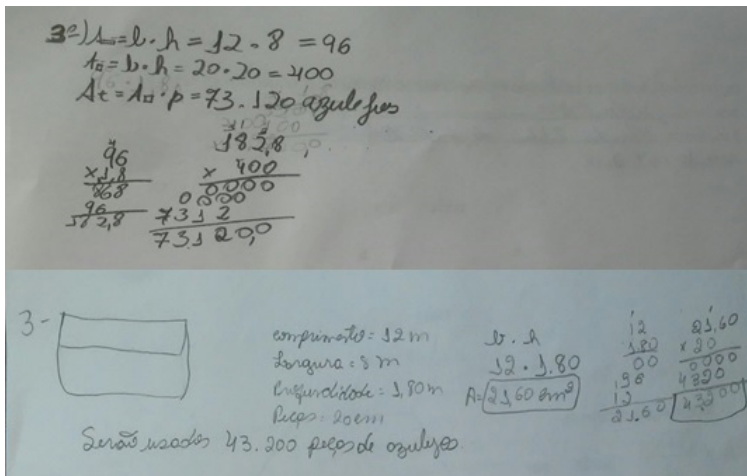 3º) A▭ = b . h = 12 . 8 = 96
A□ = b . h = 20 . 20 = 400
At = A□ . p = 73.120 azulejos
96
x 1,8
868
96
182,8
182,8
x 400
0000
0000
7312
73120,0
3-
comprimento = 12 m
Largura = 8 m
Profundidade = 1,80 m
Peças = 20 cm
b . h
12 . 1.80
A= 21,60 cm²
12
1,80
00
96
12
21.60
21,60
x 20
0000
4320
43200
Serão usados 43.200 peças de azulejo.